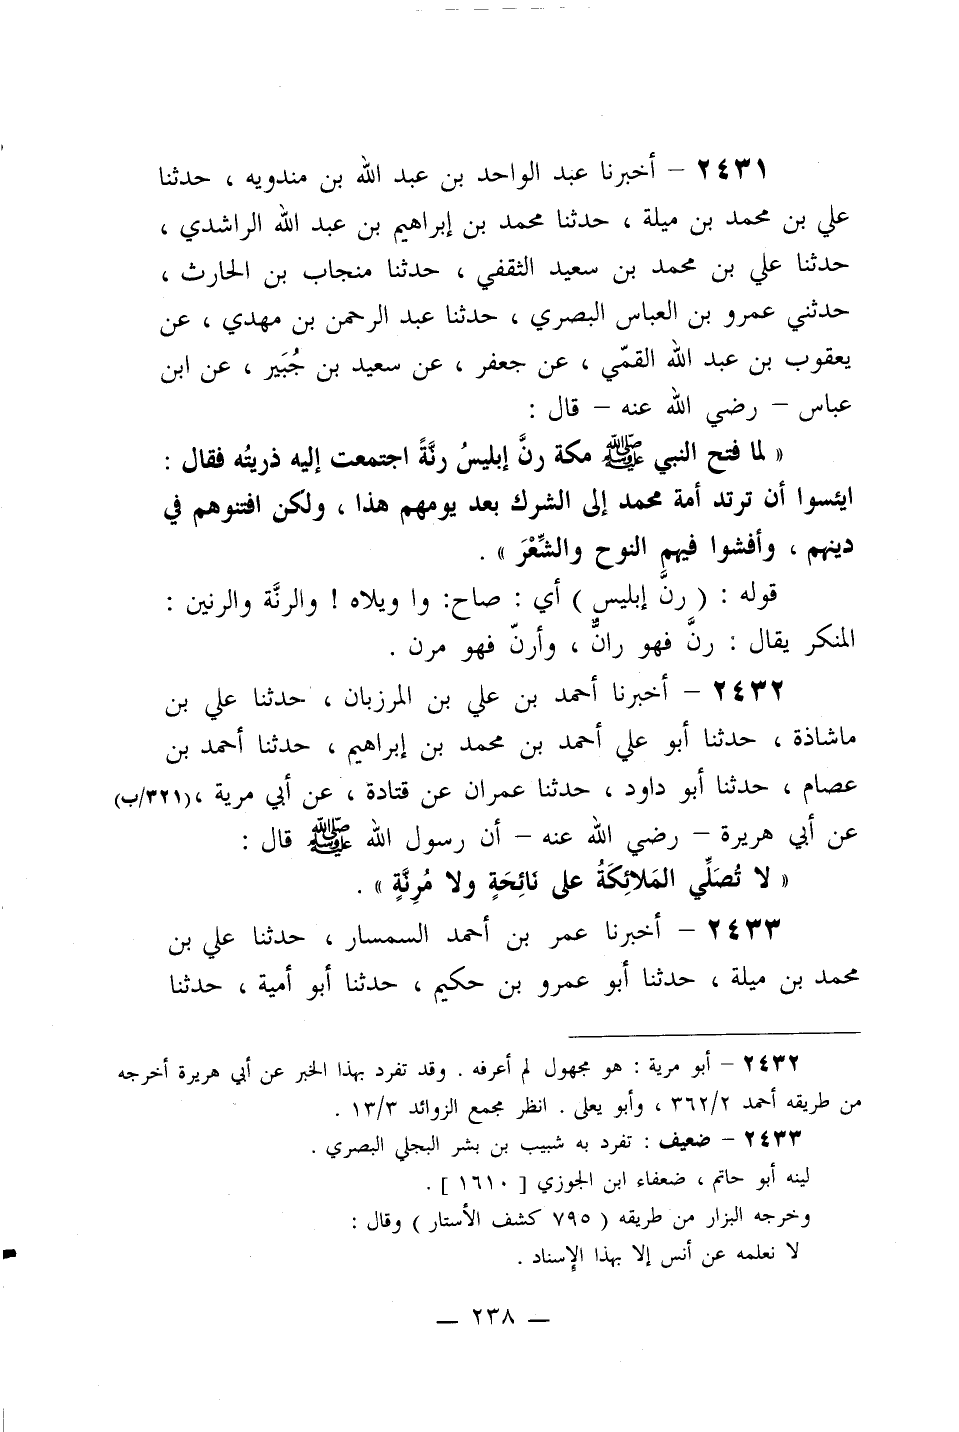 ٢٤٣١ – أخبرنا عبد الواحد بن عبد الله بن مندويه ، حدثنا
علي بن محمد بن ميلة ، حدثنا محمد بن إبراهيم بن عبد الله الراشدي ،
حدثنا علي بن محمد بن سعيد الثقفي ، حدثنا منجاب بن الحارث ،
حدثني عمرو بن العباس البصري ، حدثنا عبد الرحمن بن مهدي ، عن
يعقوب بن عبد الله القمّي ، عن جعفر ، عن سعيد بن جُبَير ، عن ابن
عباس – رضي الله عنه – قال :
« لما فتح النبي ﷺ مكة رنَّ إبليسُ رنَّةً اجتمعت إليه ذريتُه فقال :
ايئسوا أن ترتد أمة محمد إلى الشرك بعد يومهم هذا ، ولكن افتنوهم في
دينهم ، وأفشوا فيهم النوح والشِّعْرَ » .
قوله : ( رنَّ إبليس ) أي : صاح: وا ويلاه ! والرنَّة والرنين :
المنكر يقال : رنَّ فهو رانٌّ ، وأرنّ فهو مرن .
٢٤٣٢ – أخبرنا أحمد بن علي بن المرزبان ، حدثنا علي بن
ماشاذة ، حدثنا أبو علي أحمد بن محمد بن إبراهيم ، حدثنا أحمد بن
عصام ، حدثنا أبو داود ، حدثنا عمران عن قتادة ، عن أبي مرية ،(٣٢١/ب)
عن أبي هريرة – رضي الله عنه – أن رسول الله ﷺ قال :
« لا تُصَلِّي المَلائِكَةُ على نَائِحَةٍ ولا مُرِنَّةٍ » .
٢٤٣٣ – أخبرنا عمر بن أحمد السمسار ، حدثنا علي بن
محمد بن ميلة ، حدثنا أبو عمرو بن حكيم ، حدثنا أبو أمية ، حدثنا
٢٤٣٢ – أبو مرية : هو مجهول لم أعرفه . وقد تفرد بهذا الخبر عن أبي هريرة أخرجه
من طريقه أحمد ٣٦٢/٢ ، وأبو يعلى . انظر مجمع الزوائد ١٣/٣ .
٢٤٣٣ – ضعيف : تفرد به شبيب بن بشر البجلي البصري .
لينه أبو حاتم ، ضعفاء ابن الجوزي [ ١٦١٠ ] .
وخرجه البزار من طريقه ( ٧٩٥ كشف الأستار ) وقال :
لا نعلمه عن أنس إلا بهذا الإسناد .
— ٢٣٨ —